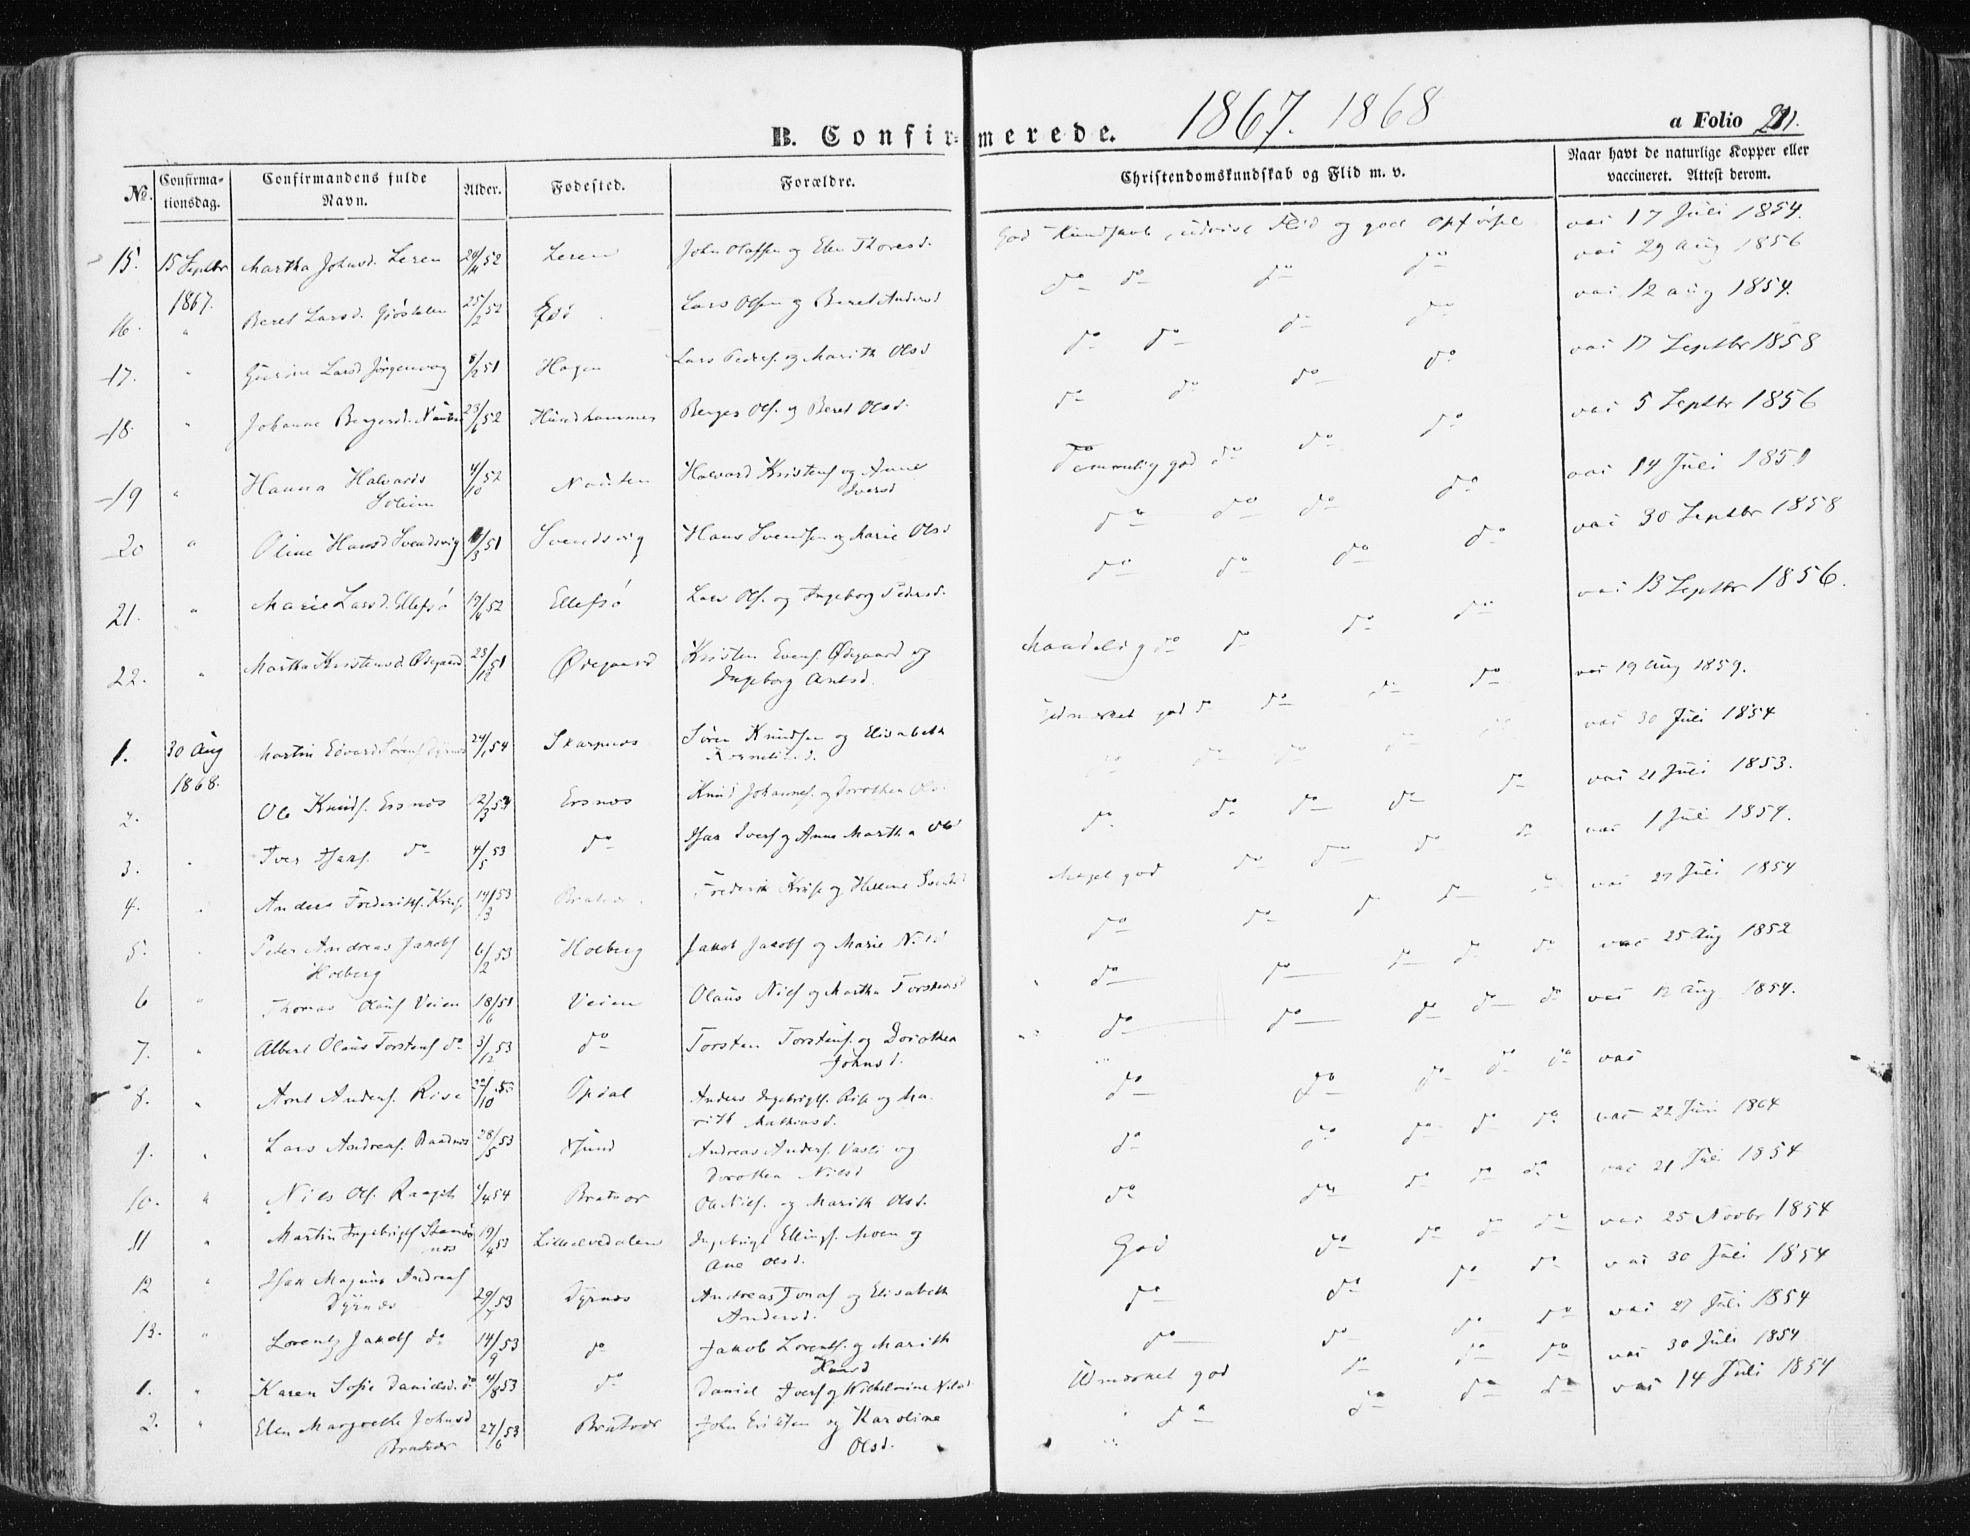 1867. 1868
B. Confirmerede.
a Folio 211.
No. Confirmationsdag. Confirmandens fulde Navn. Alder. Fødested. Forældre. Christendomskundskab og Flid m. v. Naar havt de naturlige Kopper eller vaccineret. Attest derom.
15. 15 Septbr 1867. Martha Johnsd. Leren 20/4 52 Leren John Olafsen og Elen Thoresd. God Kundskab, udvist Flid og god Opførsel vac 17 Juli 1854.
16. " Beret Larsd. 25/2 52 Lars Olsen og Beret Andersd do do do do vac 29 Aug 1856
17. " Gurine Larsd Jørgenvog /51 Hagen Lars Peders. og Marith Olsd do do do do vac 12 Aug 1854.
18. " Johanne Bergersd. Nausten 23/6 52 Hundhammer Berger Ols. og Beret Olsd. do do do do vac 17 Septbr 1858
19 " Hanna Halvards Solium 4/10 52 Nausten Halvard Kristens og Anne Iversd Temmelig god do do do vac 5 Septbr 1856
20 " Oline Hansd Svendsvig /3 51 Svendsvig Hans Svendsen og Marie Olsd do do do do vac 14 Juli 1851
21. " Marie Larsd. Ellefsø 19/4 52 Ellefsø Lars Ols. og Ingeborg Pedersd. do do do do vac 30 Septbr 1858
22. " Martha Kristensd. Ødegaard 23/12 51 Ødegaard Kristen Evens. Ødegaard og Ingeborg Arntsd. Maadelig do do do do vac 13 Septbr 1856.
1. 30 Aug 1868. Martin Edvard Sørens Dyrnes 24/1 54 Skarpnes Søren Knudsen og Elisabeth Kornelisd. Udmærket god do do do do vac 19 Aug 1859.
2. Ole Knuds. Ersnes 12/3 54 Ersnes Knud Johannes. og Dorothea Ols. do do do vac 30 Juli 1854
3. " Iver Isaks. do 4/5 53 do Isak Ivers og Anne Martha Ols do do do do do vac 21 Juli 1853.
4. " Anders Frederiks. Kruse 14/3 53 Bratvær. Frederik Kruse og Hellene Svends Meget god do do do do vac 1 Juli 1854.
5. " Peder Andreas Jakobs Holberg 6/2 53 Holberg Jakob Jakobs og Marie Nilsd do do do do do vac 27 Juli 1854
6 " Thomas Olaus Veien 18/6 51 Veien Olaus Nils og Martha Torstensd do do do do do vac 25 Aug 1852
7. " Albert Olaus Torstens do 3/12 53 do Torsten Torstens. og Dorothea Johnsd. do do do do do vac 12 Aug 1854.
8. " Arnt Anders. Rise /10 53 Opdal Anders Ingebrigts. Rise og Marith Mathiasd. do do do do do vac
9. " Lars Andreas. Baadnes 28/5 53 Sund Andreas Anders. Vasli og Dorothea Nilsd do do do do do vac 22 Juni 1864
10. " Nils Ols. 1/4 54 Bratvær Ole Nils. og Marith Olsd. do do do do do vac 21 Juli 1854
11 " Martin Ingebrigts 19/4 53 Lillelvedalen Ingebrigt Ellings. Moen og Ane Olsd. God do do do do vac 25 Novbr 1854
12 " Isak Magnus Andreas Dyrnes 29/7 53 Dyrnes Andreas Jonas og Elisabeth Andersd. do do do do vac 30 Juli 1854
13. " Lorentz Jakobs do 14/9 53 do Jakob Lorents. og Marith Hansd do do do do vac 27 Juli 1854
1. " Karen Sofie Danielsd. do 4/8 53 do Daniel Ivers og Wilhelmine Nilsd Udmærket god do do do vac 30 Juli 1854
2. " Elen Margrethe Johnsd Bratvær 27/6 53 Bratvær John Eriksen og Karoline Olsd. do do do do vac 14 Juli 1854